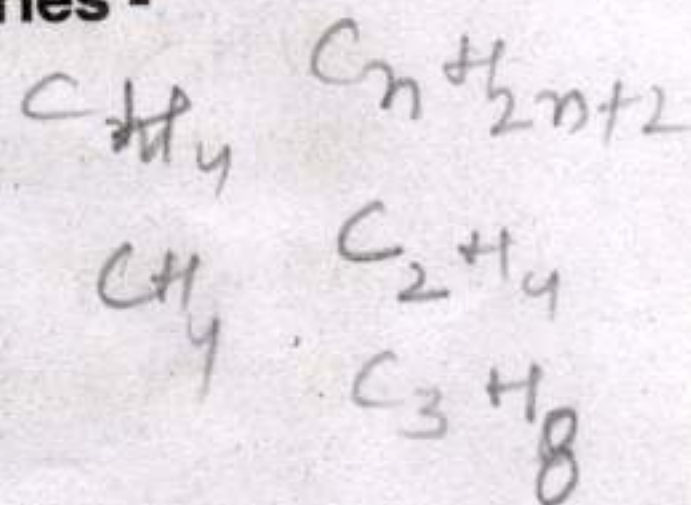 nes -
CH₄ CₙH₂ₙ₊₂
CH₄ C₂H₄
C₃H₈